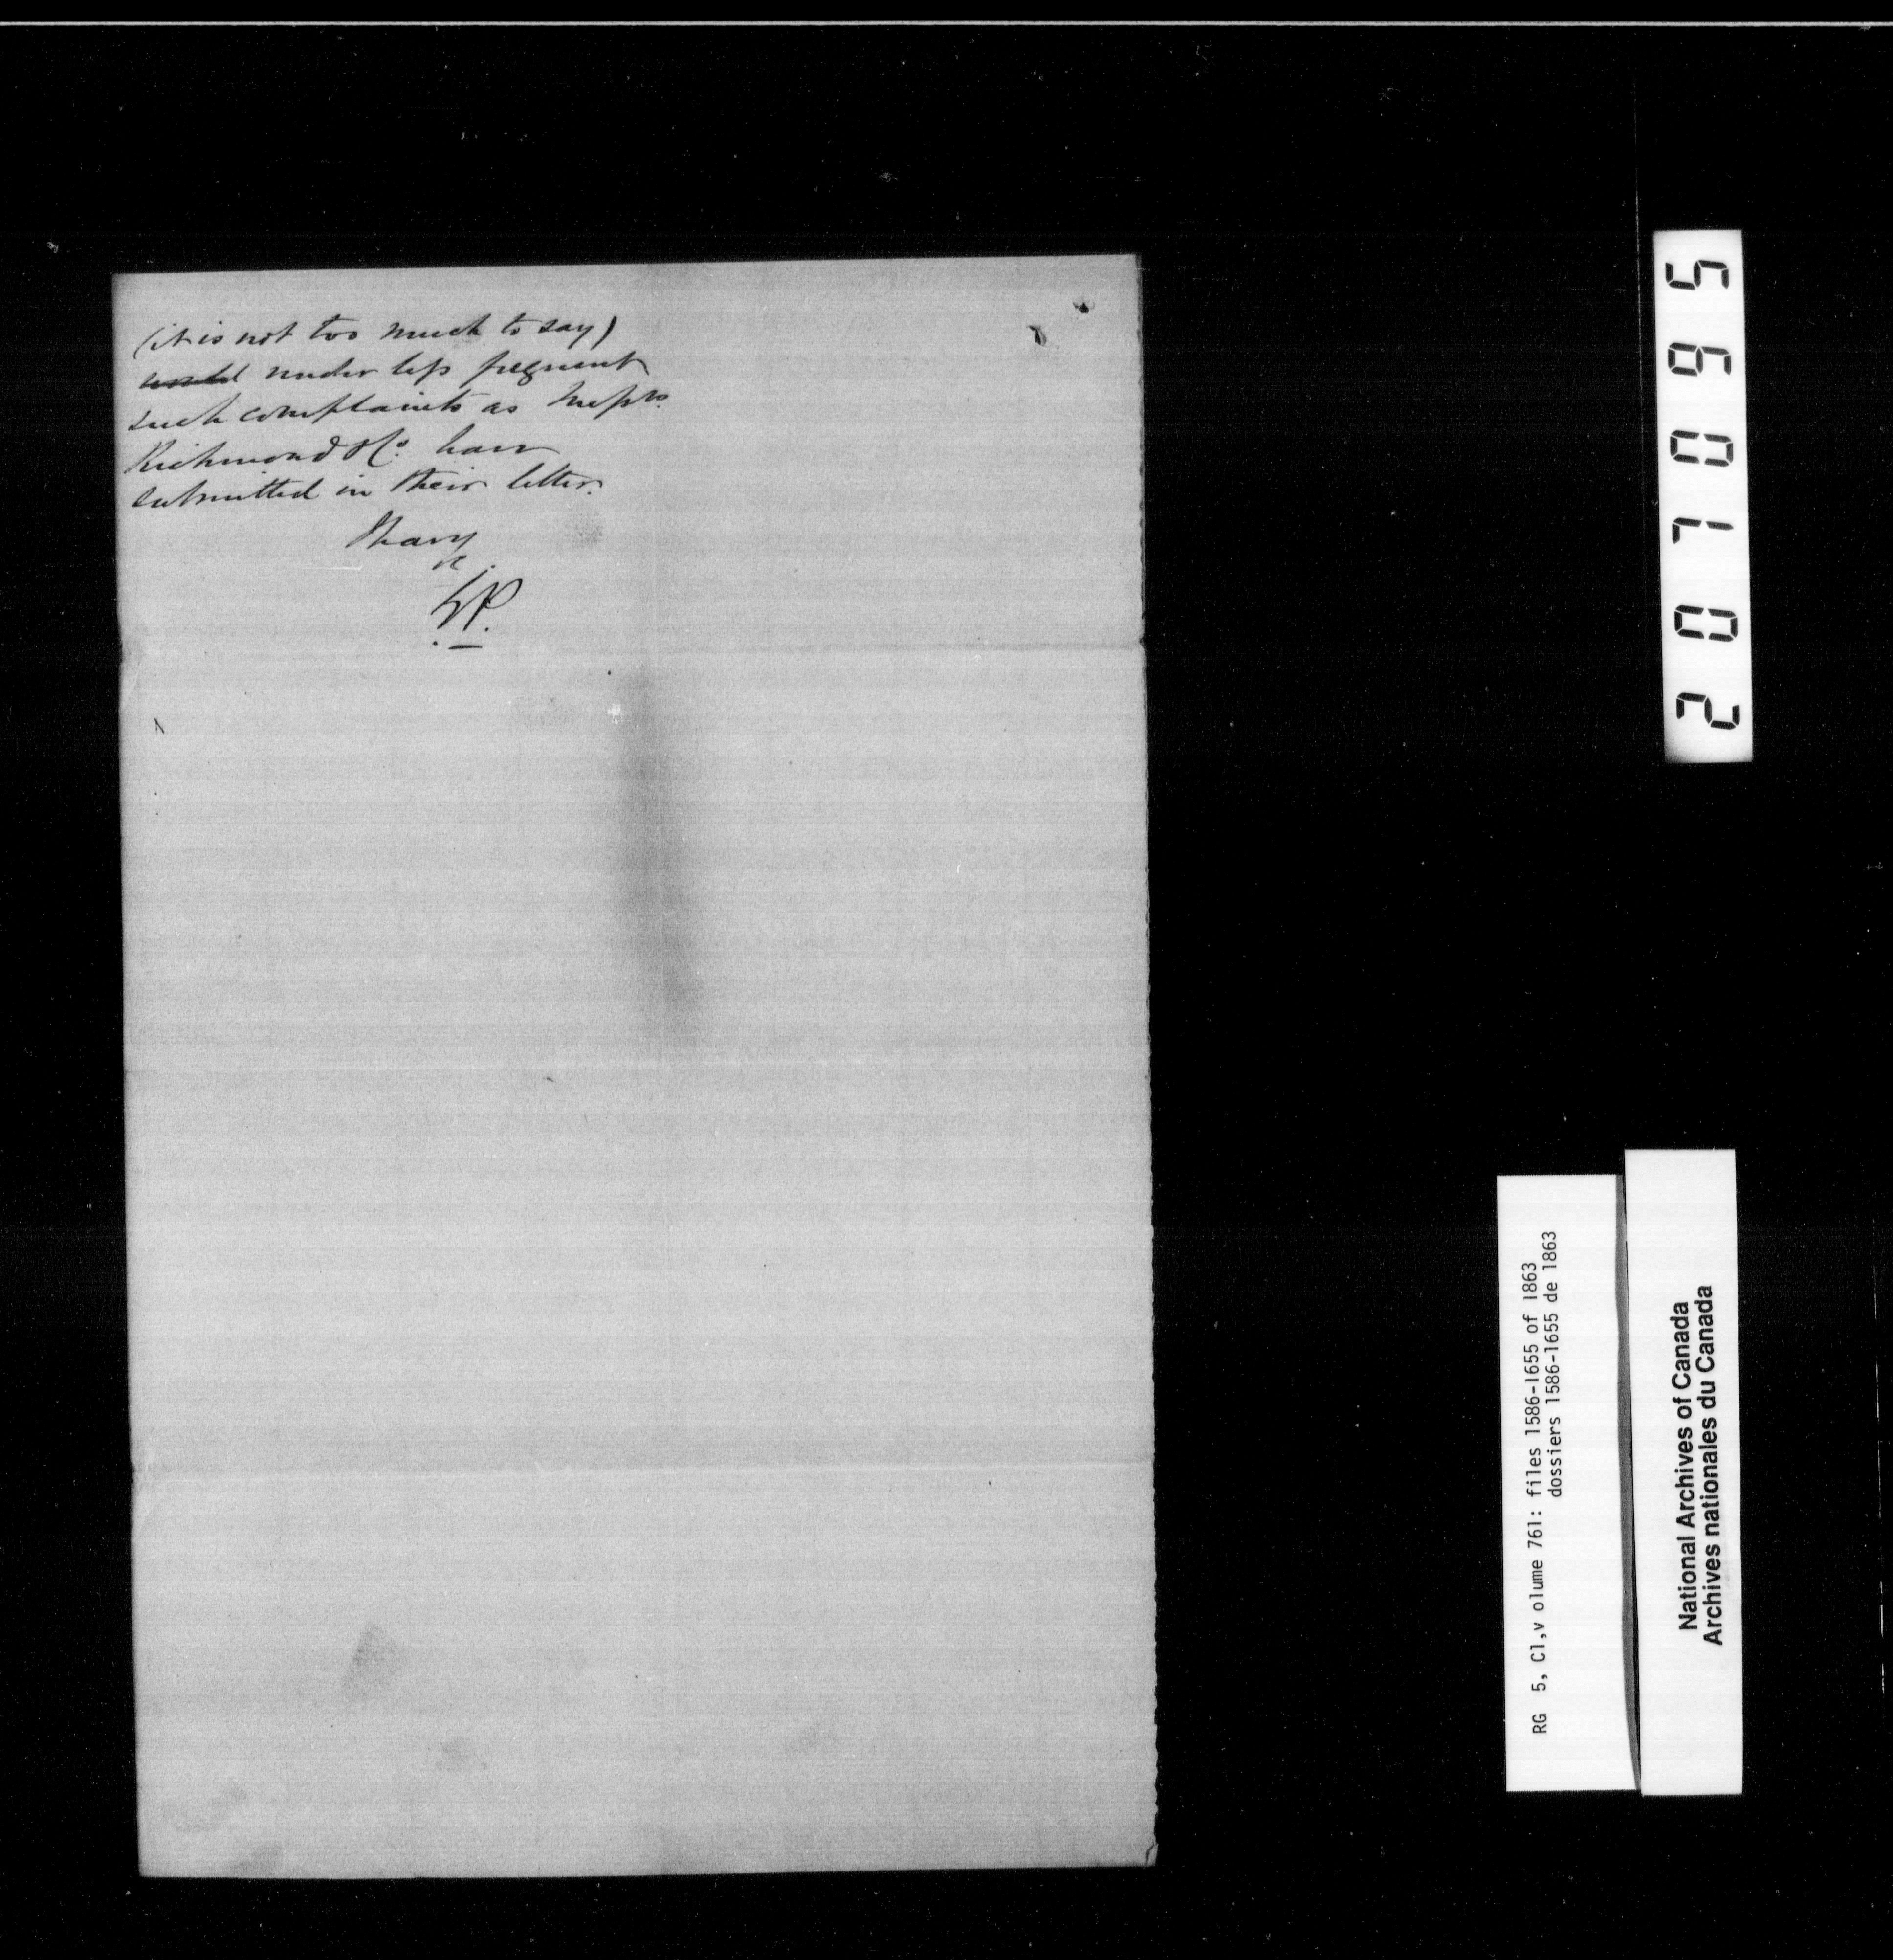 (it is not too much to say)
render less frequent
such complaints as Messrs.
Richmond & Co. have
submitted in their letter.
I have
207095
RG 5, C1,v olume 761: files 1586-1655 of 1863
dossiers 1586-1655 de 1863
National Archives of Canada
Archives nationales du Canada